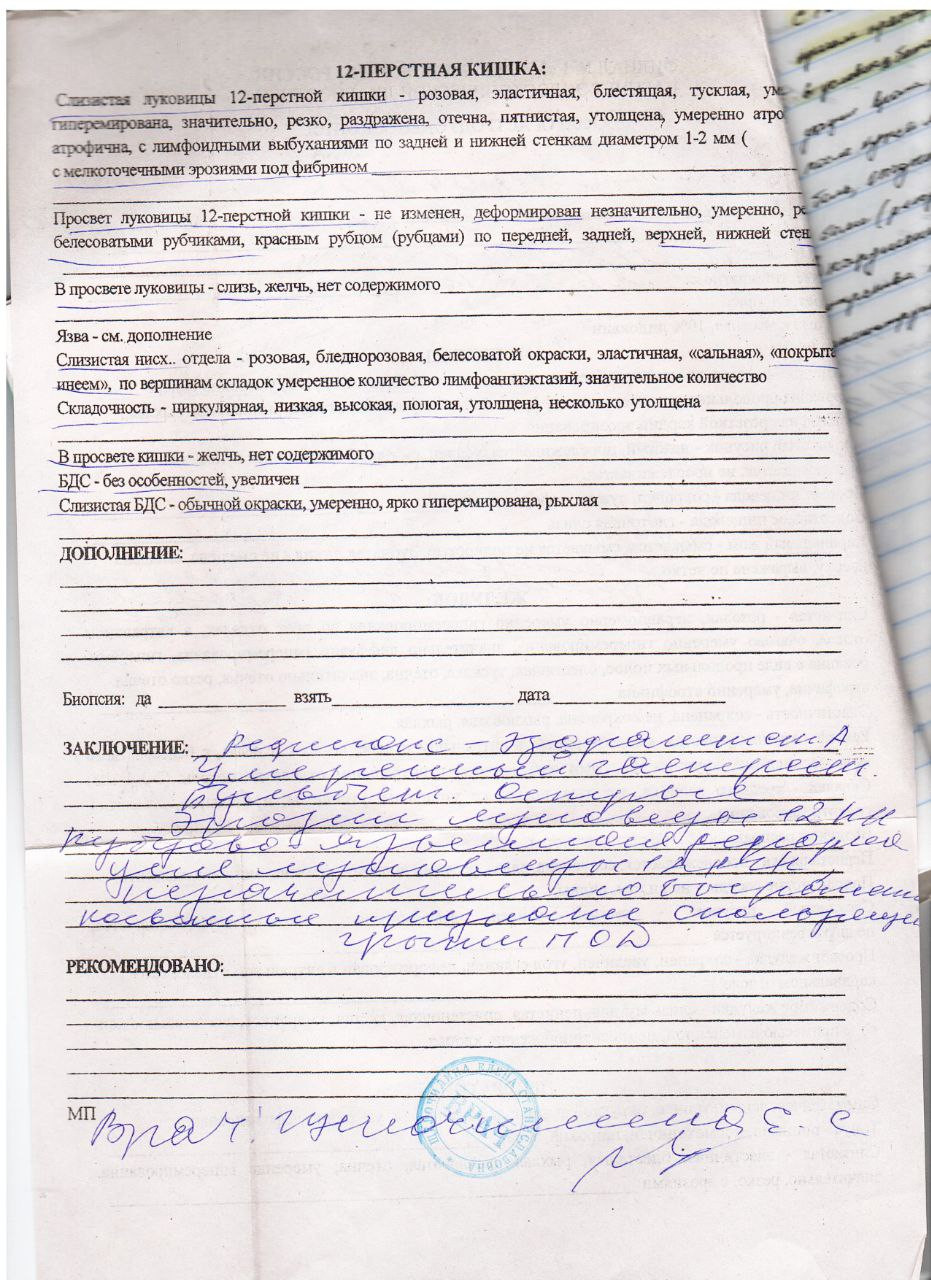 12-ПЕРСТНАЯ КИШКА:
Слизистая луковицы 12-перстной кишки - розовая, эластичная, блестящая, тусклая, ум
гиперемирована, значительно, резко, раздражена, отечна, пятнистая, утолщена, умеренно атро
атрофична, с лимфоидными выбуханиями по задней и нижней стенкам диаметром 1-2 мм (
с мелкоточечными эрозиями под фибрином
Просвет луковицы 12-перстной кишки - не изменен, деформирован незначительно, умеренно, ре
белесоватыми рубчиками, красным рубцом (рубцами) по передней, задней, верхней, нижней стен
В просвете луковицы - слизь, желчь, нет содержимого
Язва - см. дополнение
Слизистая нисх.. отдела - розовая, бледнорозовая, белесоватой окраски, эластичная, «сальная», «покрыта
инеем», по вершинам складок умеренное количество лимфоангиэктазий, значительное количество
Складочность - циркулярная, низкая, высокая, пологая, утолщена, несколько утолщена
В просвете кишки - желчь, нет содержимого
БДС - без особенностей, увеличен
Слизистая БДС - обычной окраски, умеренно, ярко гиперемирована, рыхлая
ДОПОЛНЕНИЕ:
Биопсия: да взять дата
ЗАКЛЮЧЕНИЕ: Рефлюкс - эзофагит ст. А
Умеренный гастрит.
Бульбит. Острые
Эрозии луковицы 12 ПК
Рубцово - язвенная деформа
ция луковицы 12ПК,
незначительно
косвенные признаки скользящей
грыжи ПОД
РЕКОМЕНДОВАНО:
МП
Врач: Щепочилина Е С
ВРАЧ
ЕЛЕНА СТАНИСЛАВОВНА